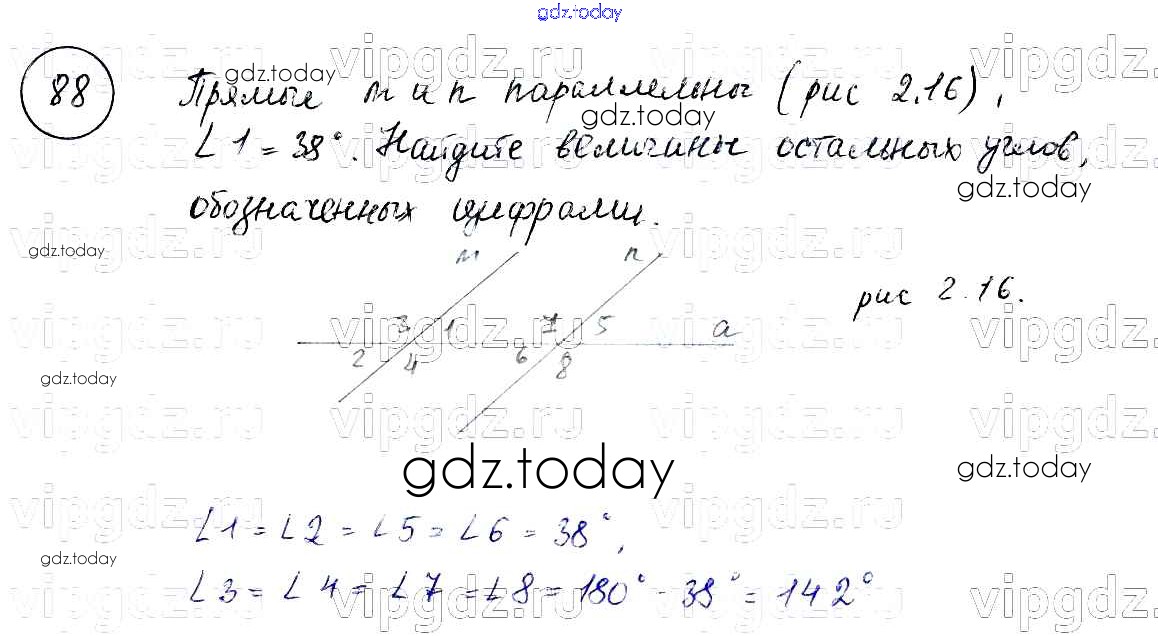 gdz.today
88
Прямые m и n параллельны (рис 2.16),
∠1 = 38°. Найдите величины остальных углов,
обозначенных цифрами.
m n
рис 2.16.
3 1 7 5 a
2 4 6 8
∠1 = ∠2 = ∠5 = ∠6 = 38°,
∠3 = ∠4 = ∠7 = ∠8 = 180° - 38° = 142°
gdz.today
gdz.today
gdz.today
gdz.today
gdz.today
gdz.today
gdz.today
gdz.today
gdz.today
vipgdz.ru
vipgdz.ru
vipgdz.ru
vipgdz.ru
vipgdz.ru
vipgdz.ru